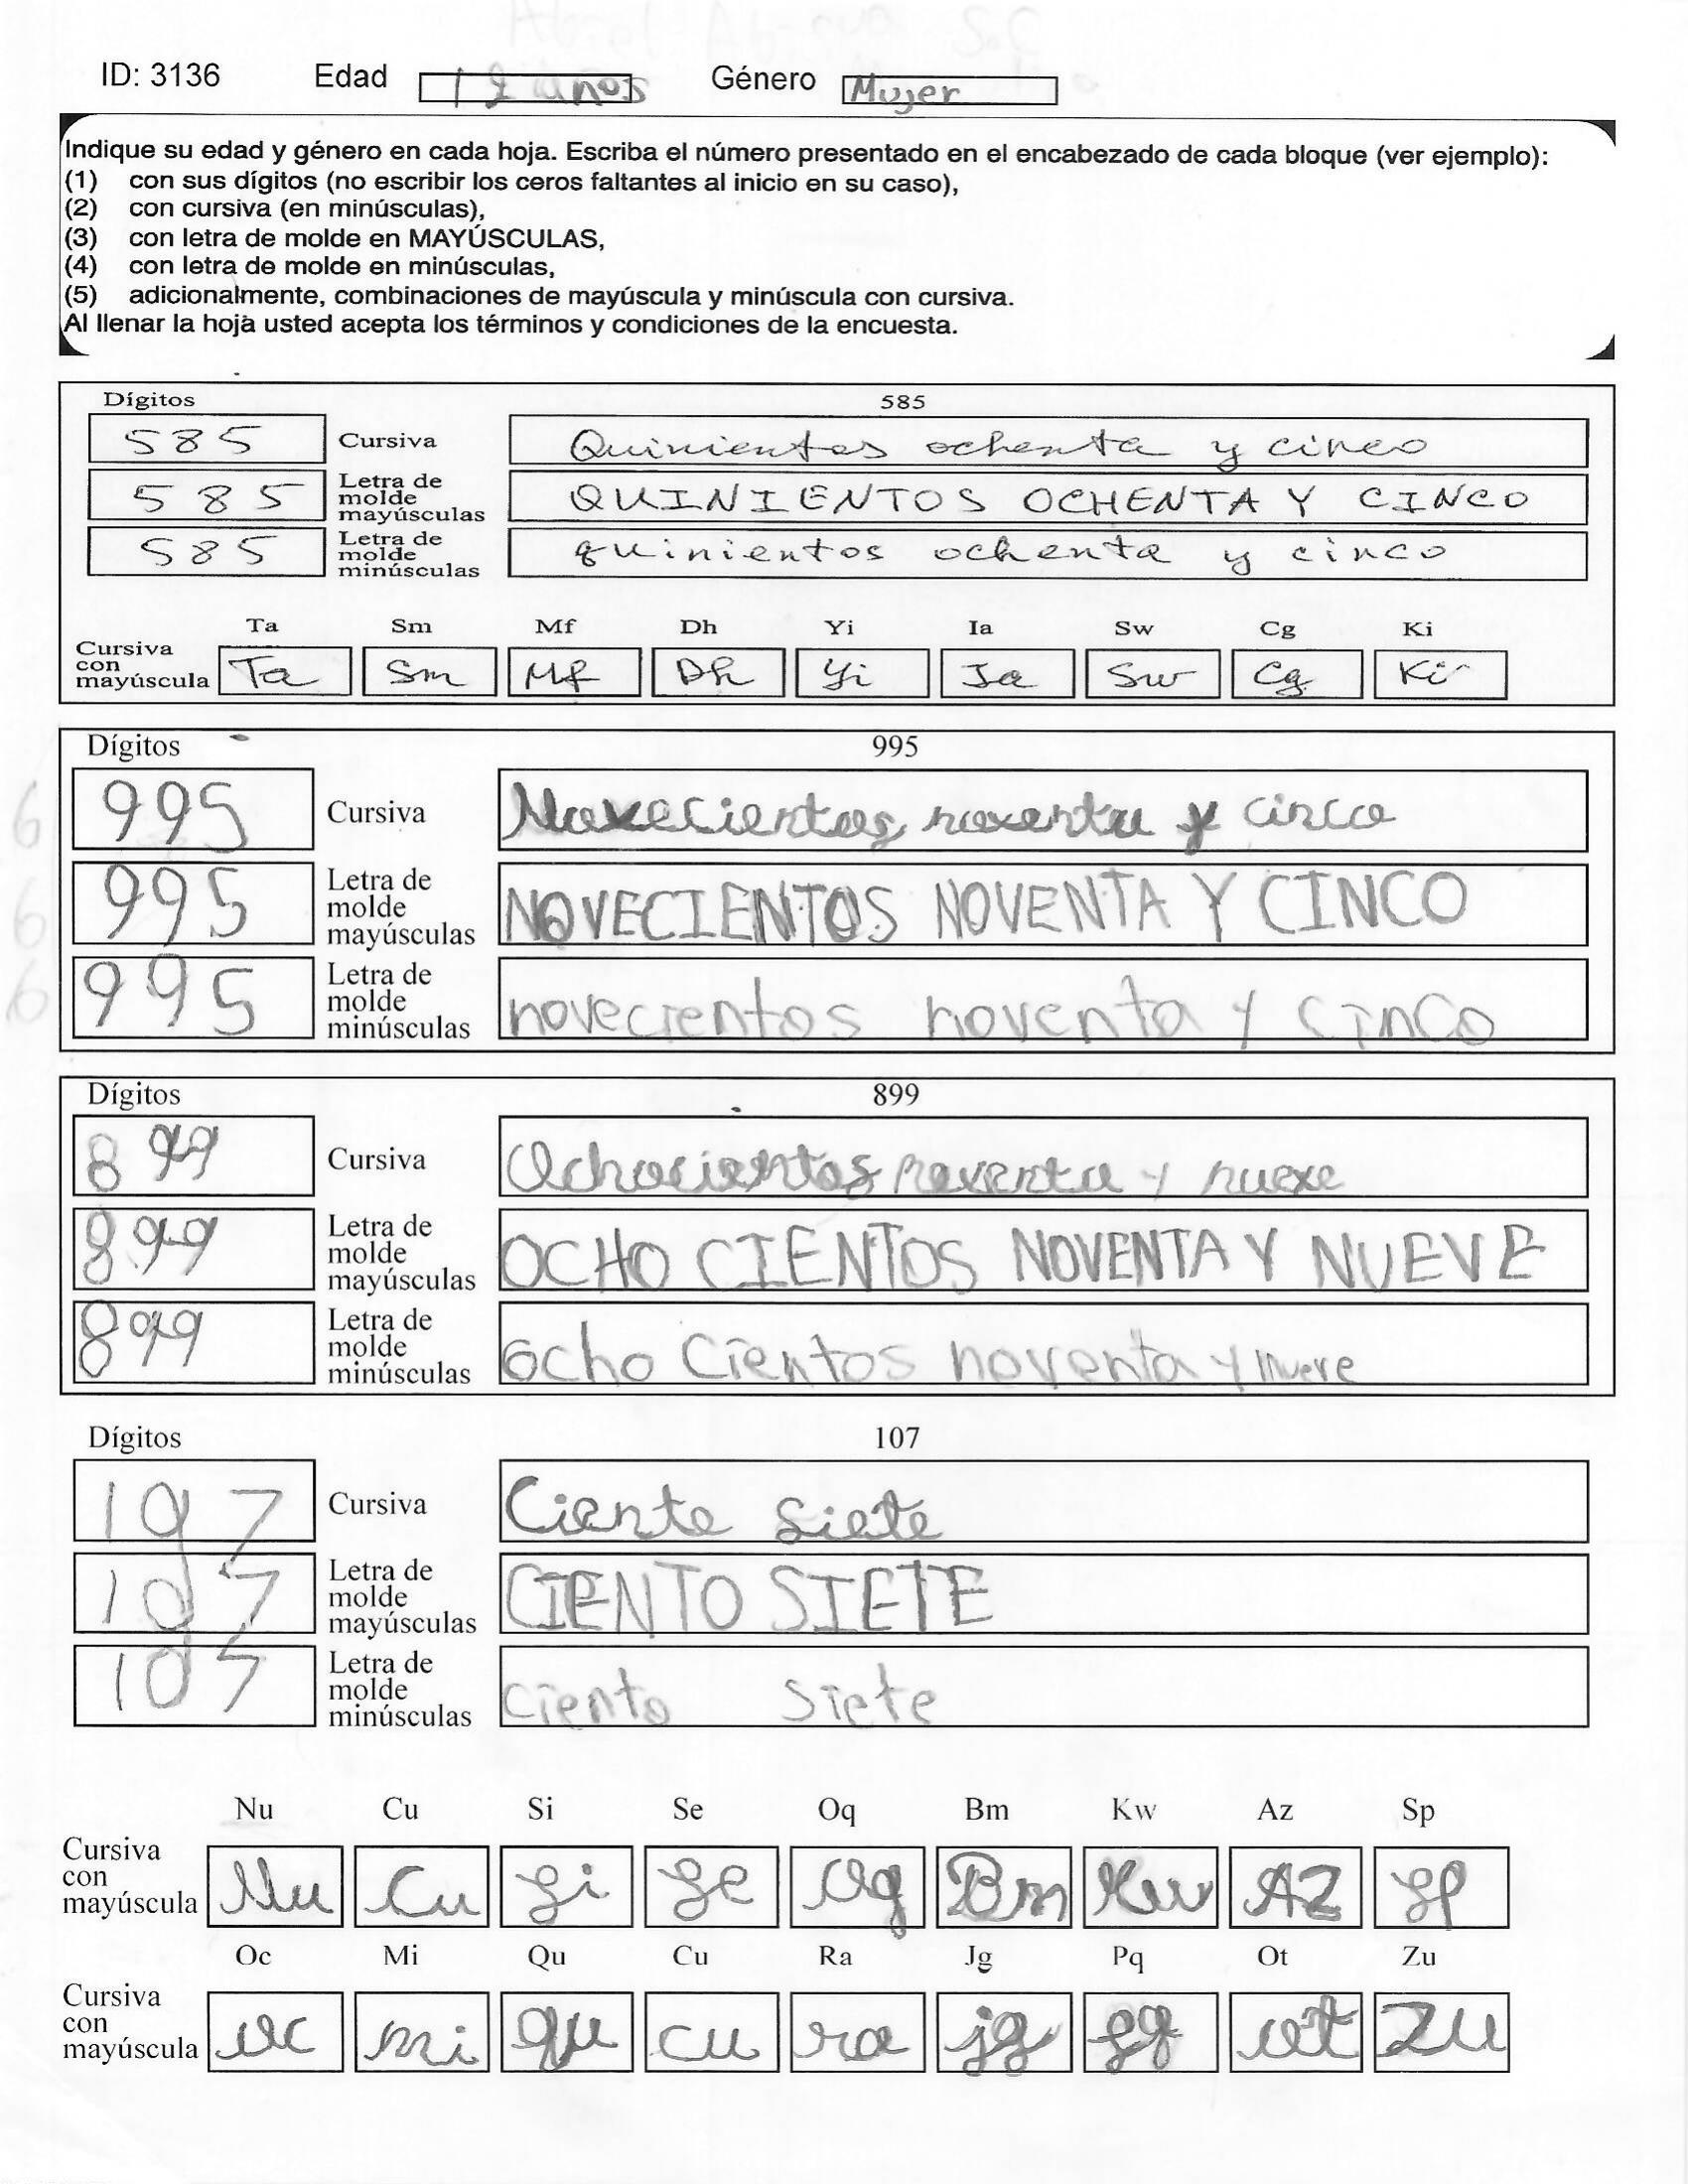 ID: 3136 Edad 12 años Género Mujer
Indique su edad y género en cada hoja. Escriba el número presentado en el encabezado de cada bloque (ver ejemplo):
(1) con sus dígitos (no escribir los ceros faltantes al inicio en su caso),
(2) con cursiva (en minúsculas),
(3) con letra de molde en MAYÚSCULAS,
(4) con letra de molde en minúsculas,
(5) adicionalmente, combinaciones de mayúscula y minúscula con cursiva.
Al llenar la hoja usted acepta los términos y condiciones de la encuesta.
Dígitos 585
585 Cursiva Quinientos ochenta y cinco
585 Letra de molde mayúsculas QUINIENTOS OCHENTA Y CINCO
585 Letra de molde minúsculas quinientos ochenta y cinco
Ta Sm Mf Dh Yi Ia Sw Cg Ki
Cursiva con mayúscula Ta Sm Mf Dh Yi Ia Sw Cg Ki
Dígitos 995
995 Cursiva Novecientos noventa y cinco
995 Letra de molde mayúsculas NOVECIENTOS NOVENTA Y CINCO
995 Letra de molde minúsculas novecientos noventa y cinco
Dígitos 899
899 Cursiva Ochocientos noventa y nueve
899 Letra de molde mayúsculas OCHO CIENTOS NOVENTA Y NUEVE
899 Letra de molde minúsculas ocho Cientos noventa y nueve
Dígitos 107
107 Cursiva Ciento siete
107 Letra de molde mayúsculas CIENTO SIETE
107 Letra de molde minúsculas ciento siete
Nu Cu Si Se Oq Bm Kw Az Sp
Cursiva con mayúscula Nu Cu Si Se Oq Bm Kw AZ Sp
Oc Mi Qu Cu Ra Jg Pq Ot Zu
Cursiva con mayúscula oc mi qu cu ra jg pq ot Zu